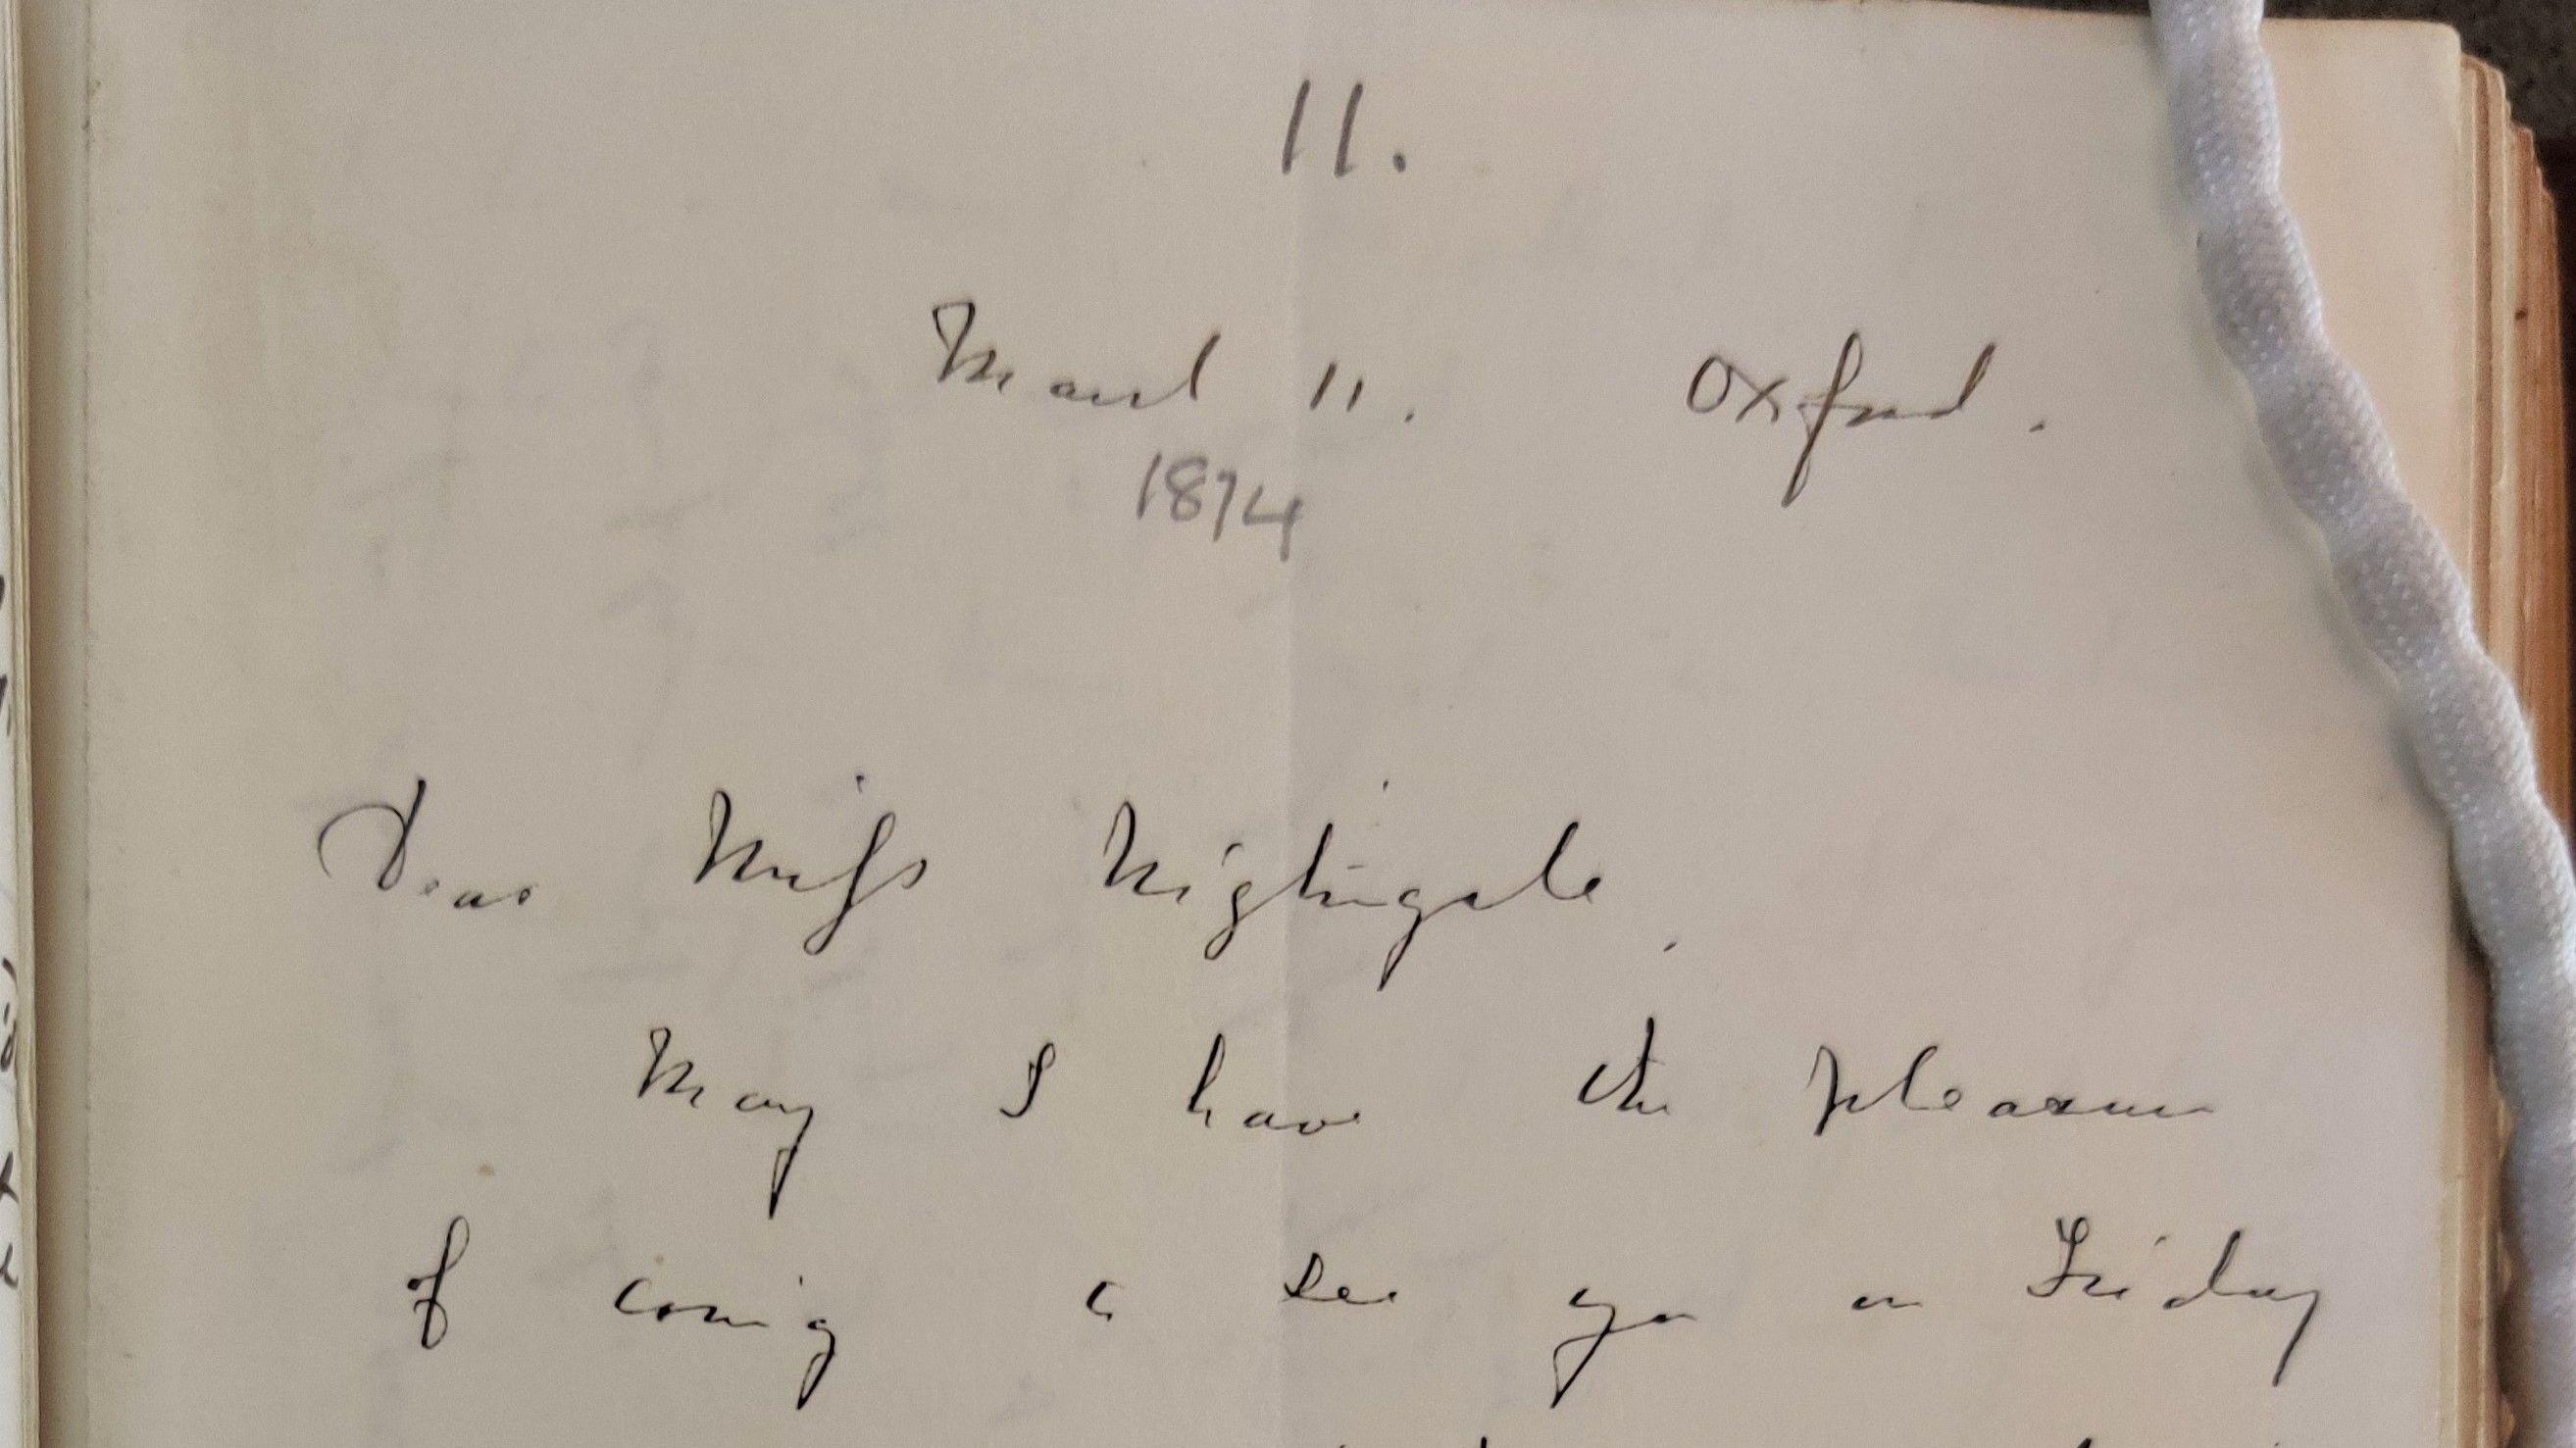 11.
March 11. Oxford.
1874
Dear Miss Nightingale,
May I have the pleasure
of coming to see you on Friday